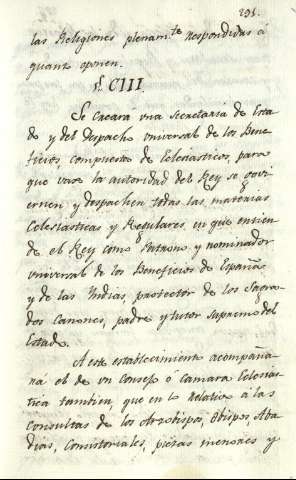 291.
las Religiones plenam.te respondidas á
quanto oponen.
§. CIII
Se creara una Secretaria de Esta
do y del Despacho vniversal de los Bene
ficios, compuesta de Eclesiasticos, para
que vaxo la autoridad del Rey se govi
ernen y despachen todas las materias
Eclesiasticas y Regulares, en que entien
de el Rey como Patrono y nominador
vniversal de los Beneficios de España
y de las Indias, protector de los Sagra
dos Canones, padre y tutor supremo del
Estado.
A este establecimiento acompaña
rá el de vn Consejo ó Camara Eclesias
tica tambien que en lo relativo á las
Consultas de los Arzobispos, Obispos, Aba
dias, Consistoriales, piezas menores y